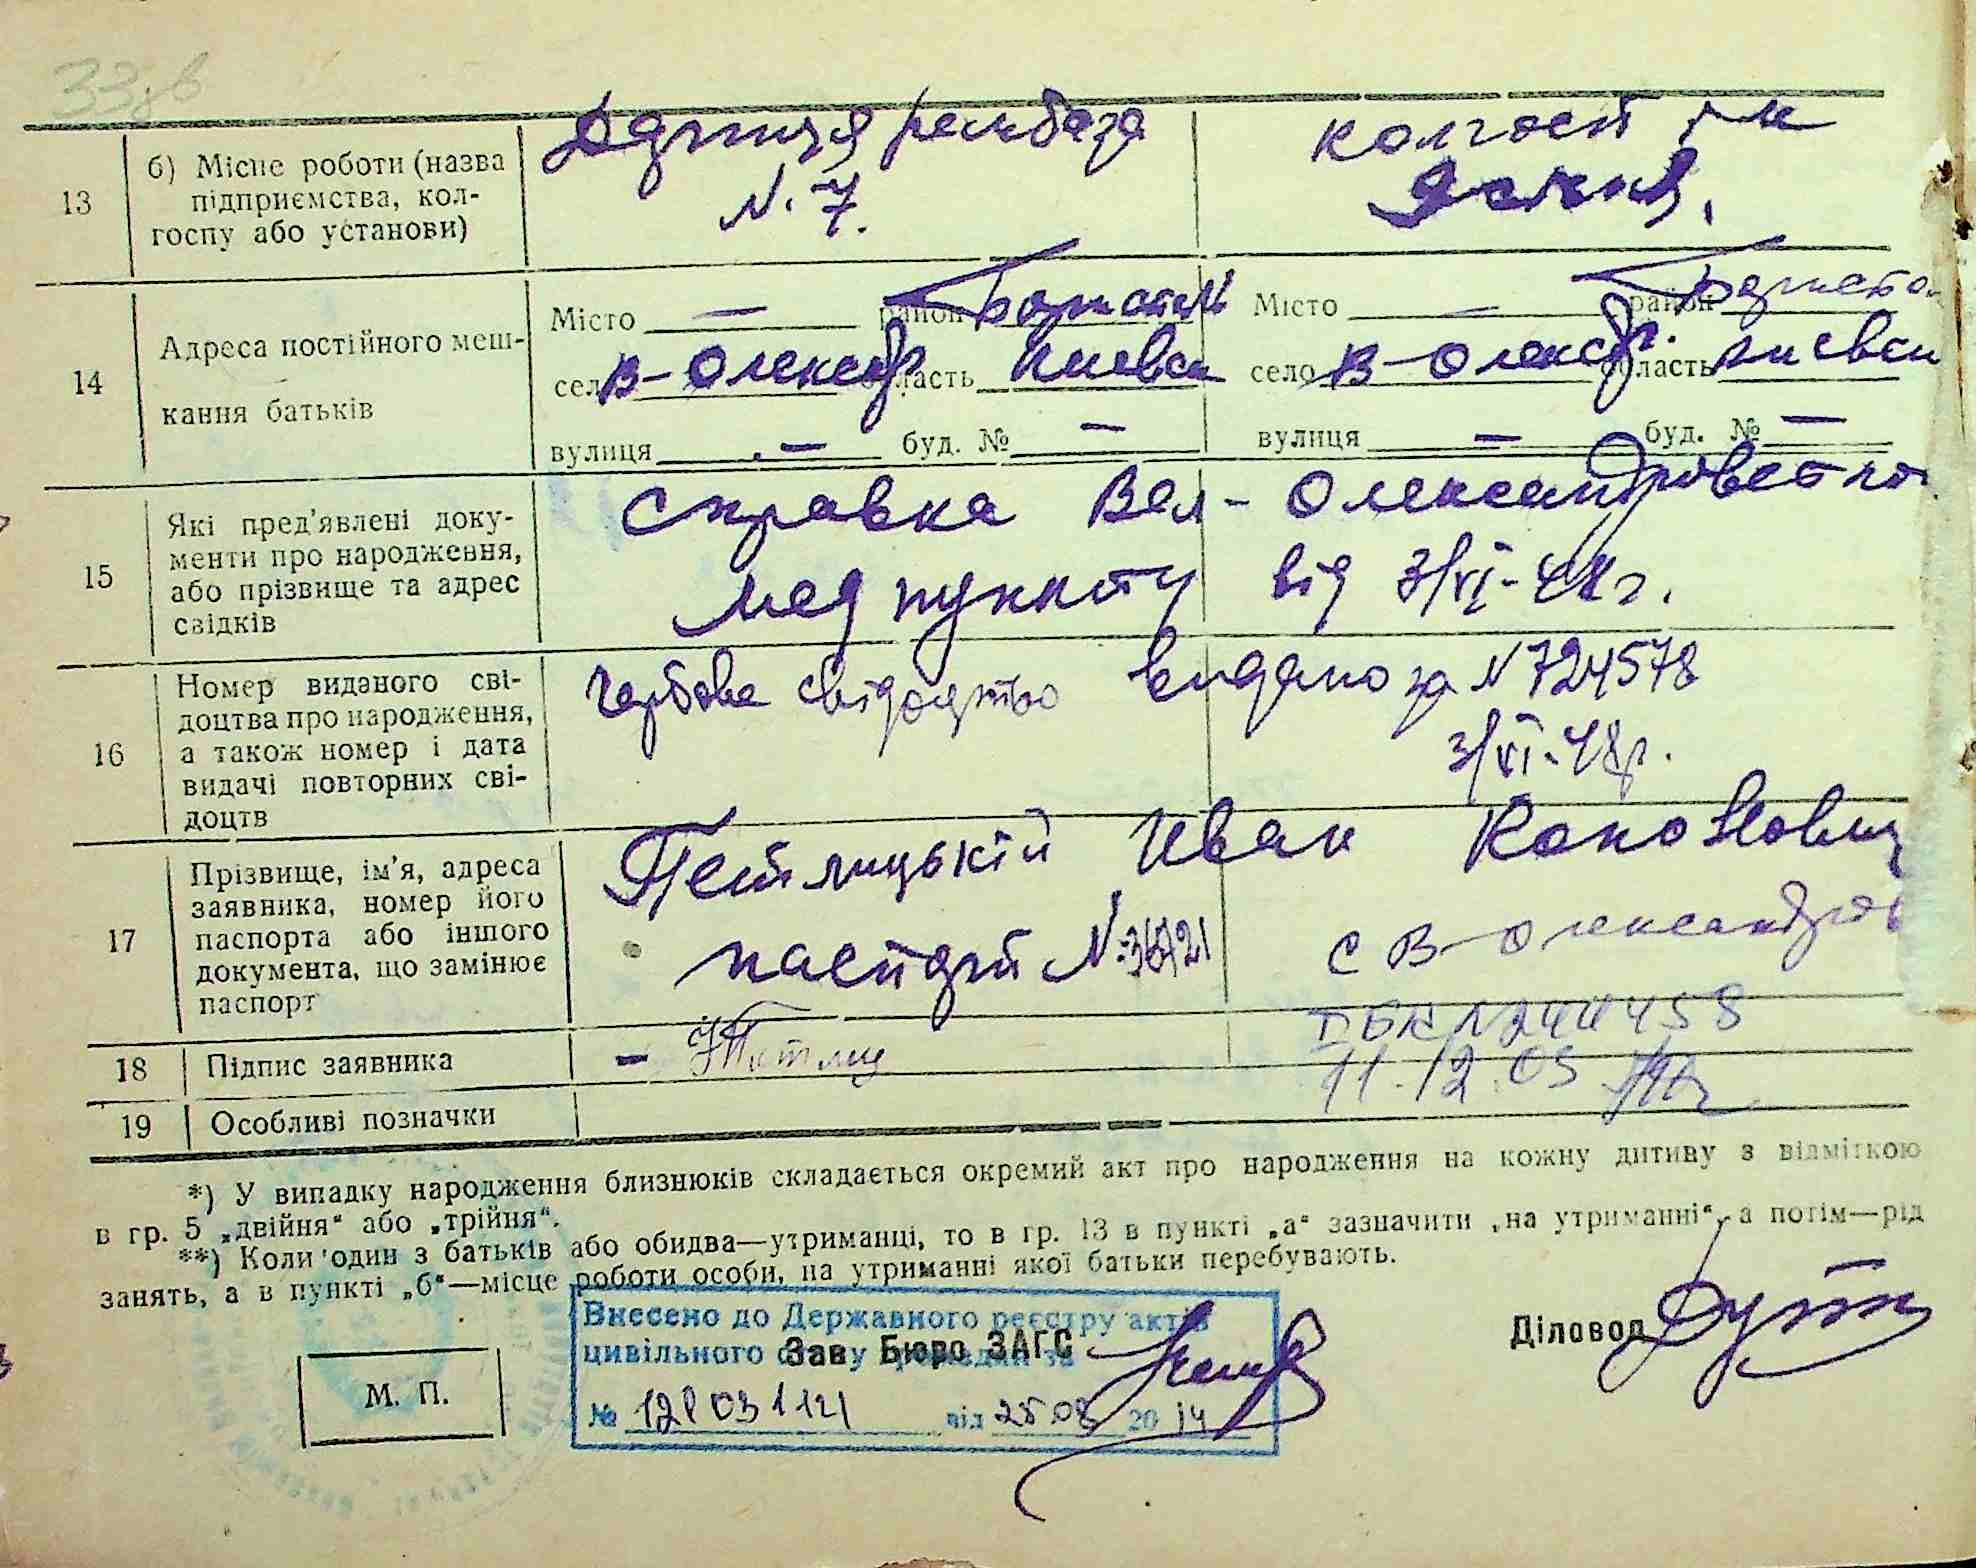 33
13
б) Місце роботи (назва
підприємства, кол-
госпу або установи)
Дарниця рембаза
N. 7.
колгосп ім
14
Адреса постійного меш-
кання батьків
Місто — район
село В-Олександр область Київськ
вулиця — буд. № —
Місто — район
село В-Олександр. область Київськ
вулиця — буд. № —
15
Які пред'явлені доку-
менти про народження,
або прізвище та адрес
свідків
Справка Вел-Олександровського
мед пункту від 3/VI-48 г.
16
Номер виданого сві-
доцтва про народження,
а також номер і дата
видачі повторних сві-
доцтв
Гербове свідоцтво видано за N 724578
3/VI-48р.
17
Прізвище, ім'я, адреса
заявника, номер його
паспорта або іншого
документа, що замінює
паспорт
Петлицькій Иван Кононович
паспорт N
с В-Олександрів
18
Підпис заявника
— Петлиц
11.12.03
19
Особливі позначки
*) У випадку народження близнюків складається окремий акт про народження на кожну дитину з відміткою
в гр. 5 „двійня“ або „трійня“.
**) Коли один з батьків або обидва—утриманці, то в гр. 13 в пункті „а“ зазначити „на утриманні“, а потім—рід
занять, а в пункті „б“—місце роботи особи, на утриманні якої батьки перебувають.
Внесено до Державного реєстру актів
цивільного стану громадян за
№ від 25.08 2014
Зав Бюро ЗАГС
Діловод
М. П.